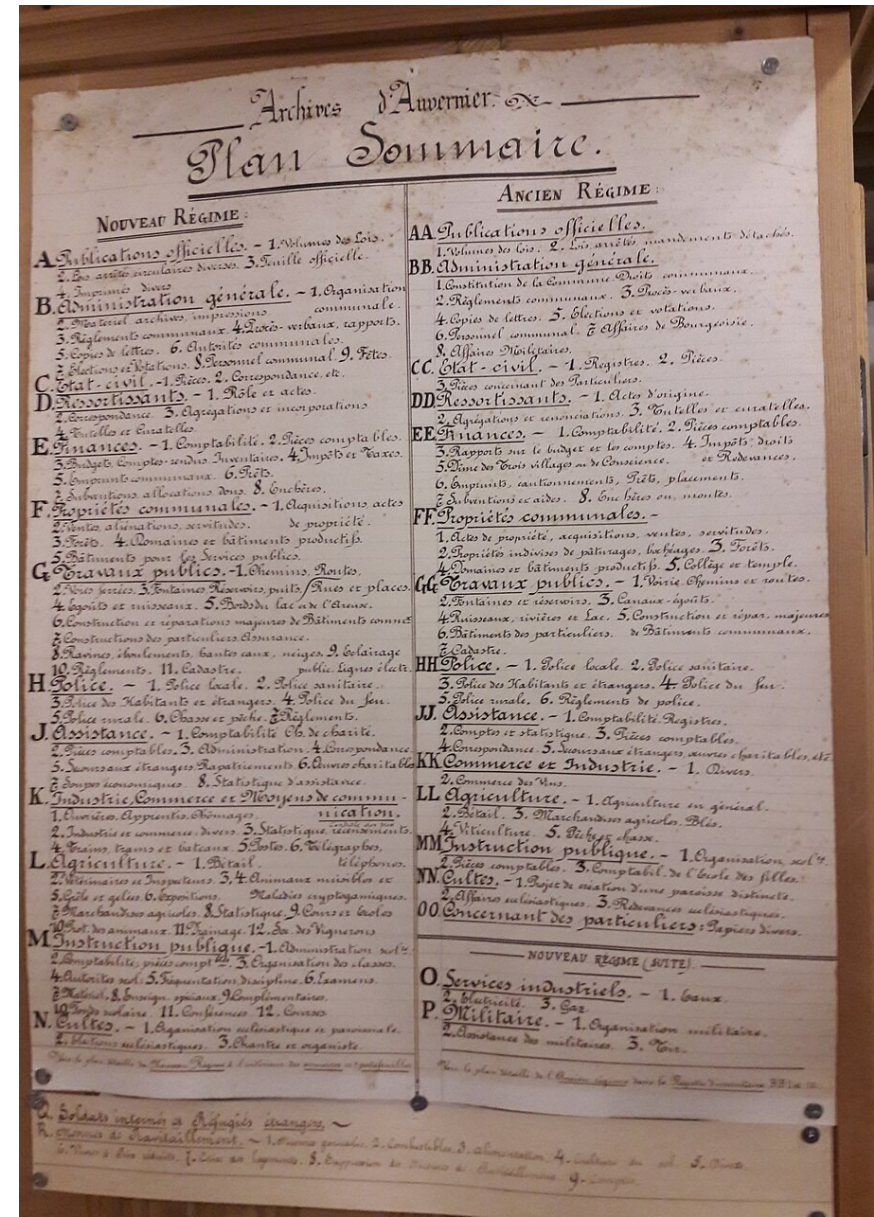 Archives d'Auvernier.
Plan Sommaire.
Nouveau Régime:
A. Publications officielles. - 1. Volumes des Lois.
2. Lois, arrêtés, circulaires diverses. 3. Feuille officielle.
4. Imprimés divers
B. Administration générale. - 1. Organisation
2. Matériel archives, impressions communale.
3. Règlements communaux. 4. Procès-verbaux, rapports.
5. Copies de lettres. 6. Autorités communales.
7. Elections et Votations. 8. Personnel communal. 9. Fêtes.
C. Etat-civil. - 1. Pièces. 2. Correspondance, etc.
D. Ressortissants. - 1. Rôle et actes.
2. Correspondance. 3. Agrégations et incorporations
4. Tutelles et Curatelles.
E. Finances. - 1. Comptabilité. 2. Pièces comptables.
3. Budgets, Comptes-rendus, Inventaires. 4. Impôts et Taxes.
5. Emprunts communaux. 6. Prêts.
7. Subventions, allocations, dons. 8. Enchères.
F. Propriétés communales. - 1. Acquisitions, actes
2. Ventes, aliénations, servitudes. de propriété.
3. Forêts. 4. Domaines et bâtiments productifs.
5. Bâtiments pour les Services publics.
G. Travaux publics. - 1. Chemins, Routes,
2. Voies ferrées. 3. Fontaines, Réservoirs, puits. / Rues et places.
4. Egoûts et ruisseaux. 5. Bords du lac et de l'Areuse.
6. Construction et réparations majeures de Bâtiments commx
7. Constructions des particuliers. Assurance.
8. Ravines, éboulements, hautes eaux, neiges. 9. Eclairage
10. Règlements. 11. Cadastre. public. Lignes électr.
H. Police. - 1. Police locale. 2. Police sanitaire.
3. Police des Habitants et étrangers. 4. Police du feu.
5. Police rurale. 6. Chasse et pêche. 7. Règlements.
J. Assistance. - 1. Comptabilité Ch. de charité.
2. Pièces comptables. 3. Administration. 4. Correspondance.
5. Secours aux étrangers. Rapatriements. 6. Œuvres charitables
7. Soupes économiques. 8. Statistique d'assistance.
K. Industrie, Commerce et Moyens de commu-
1. Ouvrières, Apprentis, Chômages. nication.
2. Industrie et commerce, divers. 3. Statistique, recensements.
4. Trains, trams et bateaux. 5. Postes. 6. Télégraphes,
L. Agriculture. - 1. Bétail. téléphones.
2. Vétérinaires et Inspecteurs. 3. 4. Animaux nuisibles et
5. Grêle et gelées. 6. Expositions. Maladies cryptogamiques.
7. Marchandises agricoles. 8. Statistique. 9. Cours et écoles
10. Prot. des animaux. 11. Drainage. 12. Soc. des Vignerons
M. Instruction publique. - 1. Administration scolre.
2. Comptabilité, pièces comptles. 3. Organisation des classes.
4. Autorités scol. 5. Fréquentation, discipline. 6. Examens.
7. Matériel. 8. Enseign. spéciaux. 9. Complémentaires.
10. Fonds scolaire. 11. Conférences. 12. Courses
N. Cultes. - 1. Organisation ecclésiastique et paroissiale.
2. Elections ecclésiastiques. 3. Chantre et organiste.
Voir le plan détaillé du Nouveau Régime à l'intérieur des armoires et portefeuilles
Ancien Régime:
AA. Publications officielles.
1. Volumes des lois. 2. Lois, arrêtés, mandements détachés.
BB. Administration générale.
1. Constitution de la Commune. Droits communaux.
2. Règlements communaux. 3. Procès-verbaux.
4. Copies de lettres. 5. Elections et votations.
6. Personnel communal. 7. Affaires de Bourgeoisie.
8. Affaires Militaires.
CC. Etat-civil. - 1. Registres. 2. Pièces.
3. Pièces concernant des Particuliers.
DD. Ressortissants. - 1. Actes d'origine.
2. Agrégations et renonciations. 3. Tutelles et curatelles.
EE. Finances. - 1. Comptabilité. 2. Pièces comptables.
3. Rapports sur le budget et les comptes. 4. Impôts; droits
5. Dîme des Trois villages ou de Conscience. et Redevances.
6. Emprunts, cautionnements, Prêts, placements.
7. Subventions et aides. 8. Enchères ou montes.
FF. Propriétés communales. -
1. Actes de propriété, acquisitions, ventes, servitudes.
2. Propriétés indivises de pâturages, bochéages. 3. Forêts.
4. Domaines et bâtiments productifs. 5. Collège et temple.
GG. Travaux publics. - 1. Voirie. Chemins et routes.
2. Fontaines et réservoirs. 3. Canaux-égoûts.
4. Ruisseaux, rivières et Lac. 5. Construction et répar. majeures
6. Bâtiments des particuliers. de Bâtiments communaux.
7. Cadastre.
HH. Police. - 1. Police locale. 2. Police sanitaire.
3. Police des Habitants et étrangers. 4. Police du feu.
5. Police rurale. 6. Règlements de police.
JJ. Assistance. - 1. Comptabilité. Registres.
2. Comptes et statistique. 3. Pièces comptables.
4. Correspondance. 5. Secours aux étrangers, œuvres charitables, etc
KK. Commerce et Industrie. - 1. Divers.
2. Commerce des Vins.
LL. Agriculture. - 1. Agriculture en général.
2. Bétail. 3. Marchandises agricoles. Blés.
4. Viticulture. 5. Pêche et chasse.
MM. Instruction publique. - 1. Organisation scolre.
2. Pièces comptables. 3. Comptabil. de l'école des filles.
NN. Cultes. - 1. Projet de création d'une paroisse distincte.
2. Affaires ecclésiastiques. 3. Redevances ecclésiastiques.
OO. Concernant des particuliers: Papiers divers.
NOUVEAU RÉGIME (SUITE).
O. Services industriels. - 1. Eaux.
2. Electricité. 3. Gaz
P. Militaire. - 1. Organisation militaire.
2. Assistance des militaires. 3. Tir.
Voir le plan détaillé de l'Ancien régime dans le Registre d'inventaire
Q. Soldats internés et Réfugiés étrangers.
R. de Ravitaillement. - 1. Mesures générales. 2. Combustibles. 3. alimentation. 4. Cultures du sol. 5.
7. Crise des logements. 8. Suppression de